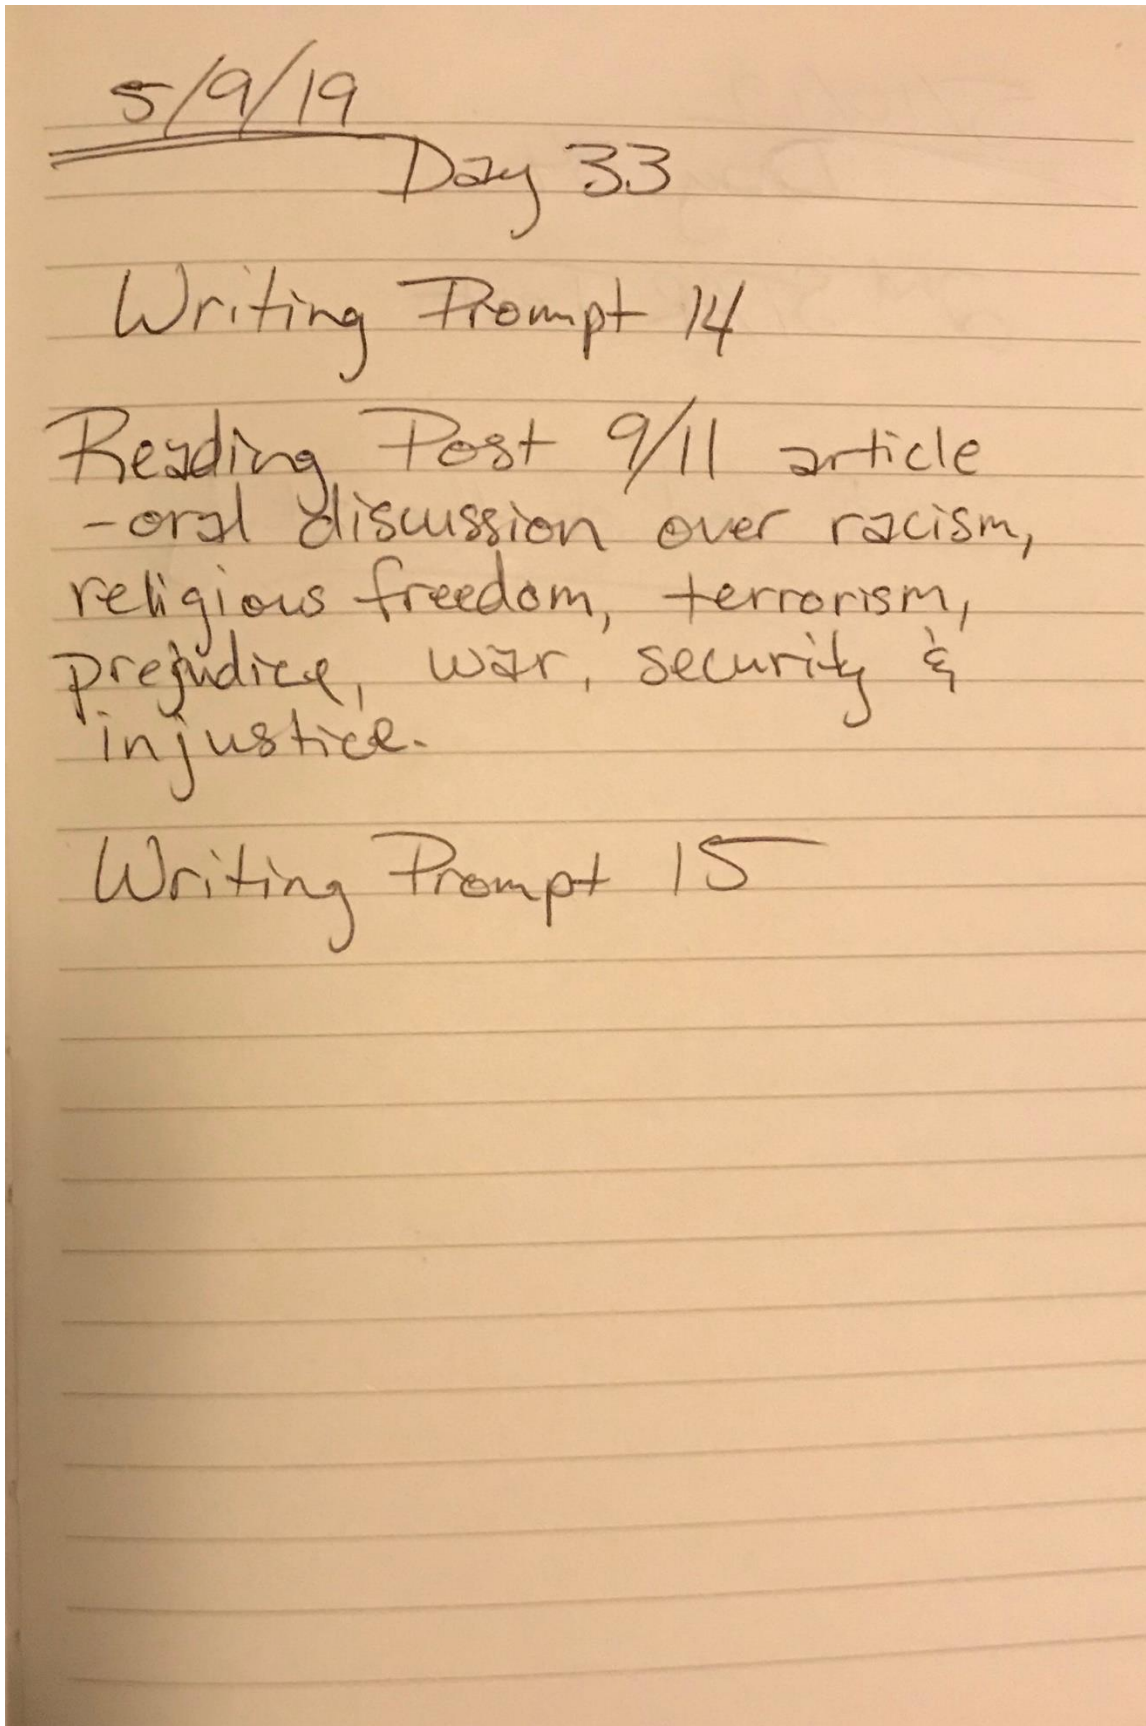 5/9/19
Day 33
Writing Prompt 14
Reading Post 9/11 article
-oral discussion over racism,
religious freedom, terrorism,
prejudice, war, security &
injustice.
Writing Prompt 15